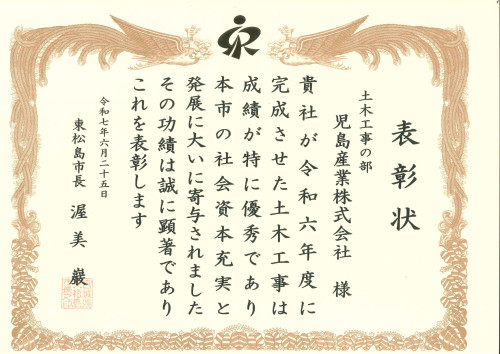 表彰状
土木工事の部
児島産業株式会社 様
貴社が令和六年度に
完成させた土木工事は
成績が特に優秀であり
本市の社会資本充実と
発展に大いに寄与されました
その功績は誠に顕著であり
これを表彰します
令和七年六月二十五日
東松島市長 渥美巖